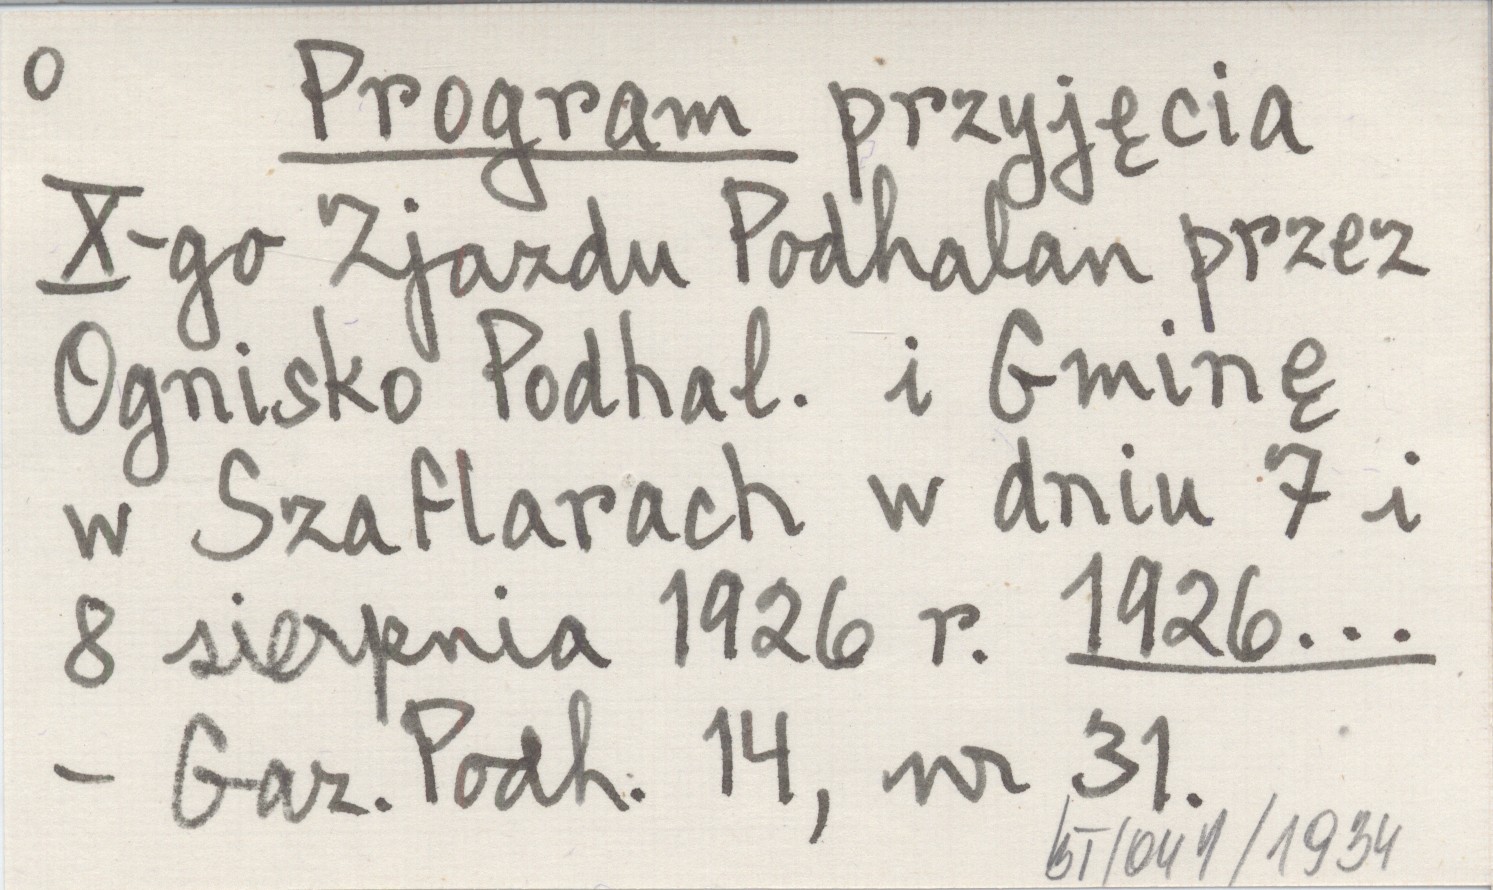 o Program przyjęcia
X-go Zjazdu Podhalan przez
Ognisko Podhal. i Gminę
w Szaflarach w dniu 7 i
8 sierpnia 1926 r. 1926...
- Gaz. Podh. 14, nr 31.
/1934